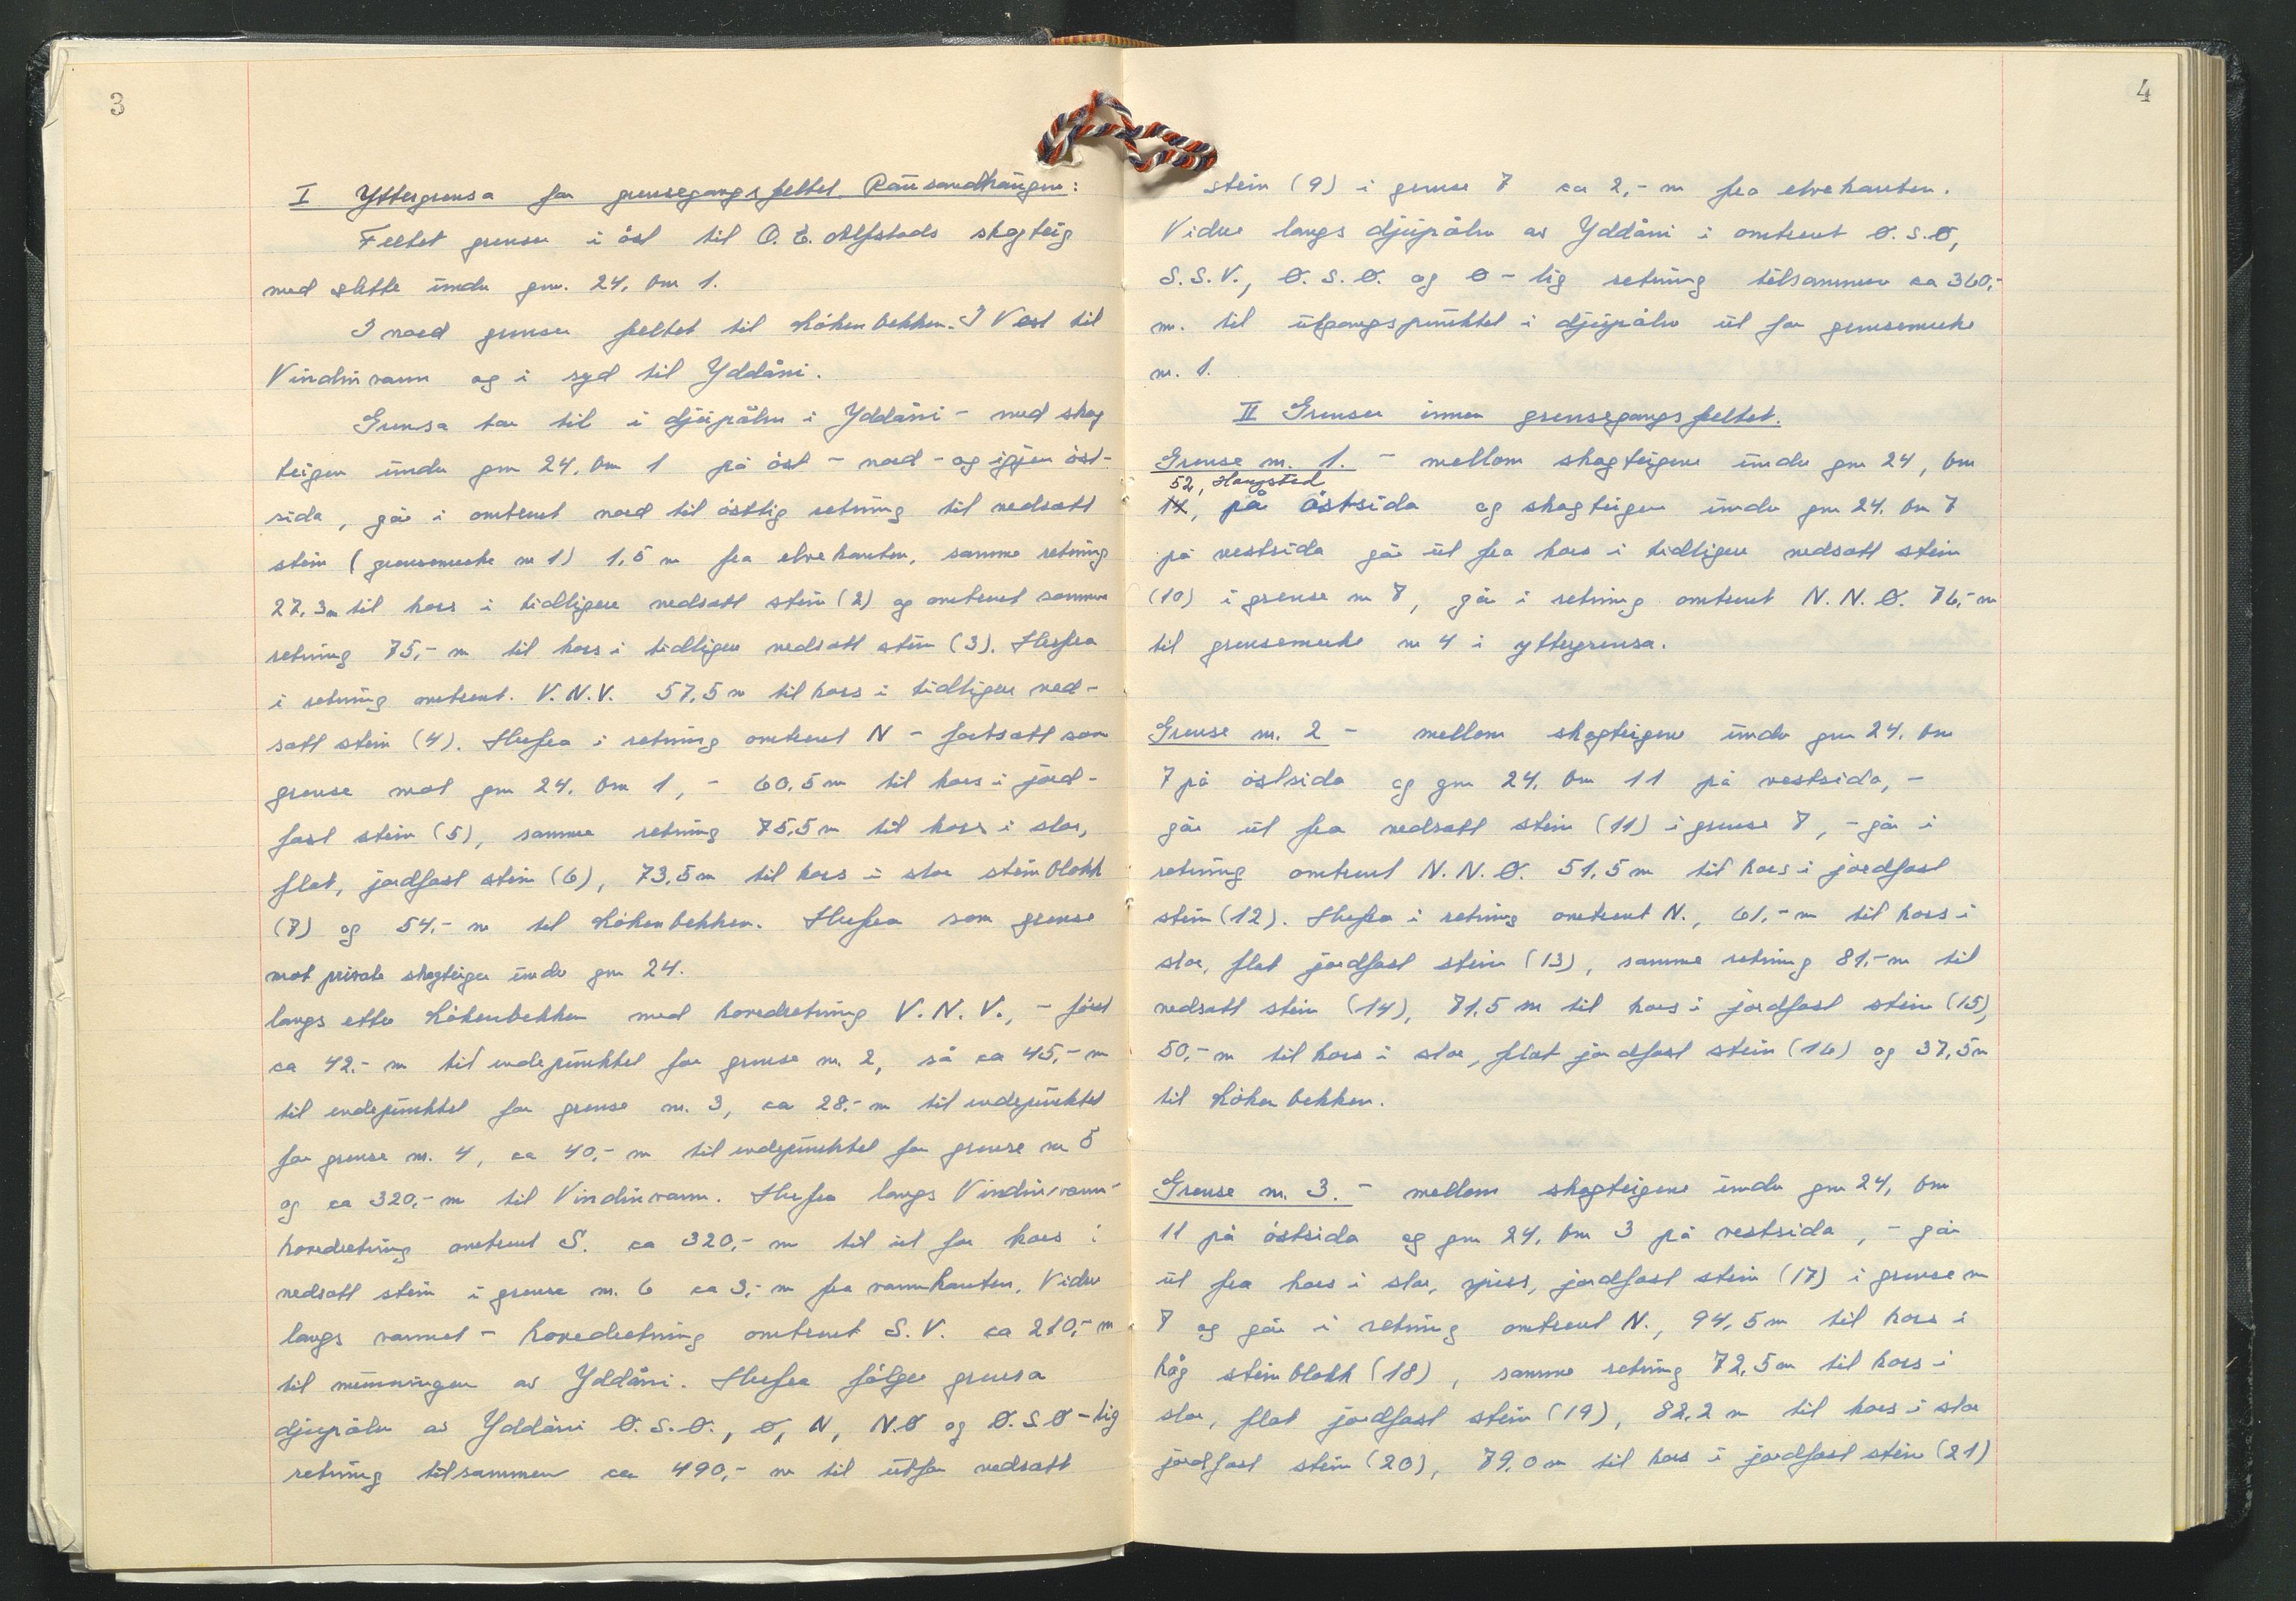 3
I Yttergrensa for grensegangsfeltet Rausandhaugen:
Feltet grenser i öst til O. E. Alfstads skogteig
med slette under gnr. 24, bnr 1.
I nord grenser feltet til Kökenbekken. I Vest til
Vindinvann og i syd til Yddåni.
Grensa tar til i djupålen i Yddåni - med skog
teigen under gnr 24, bnr 1 på öst - nord - og igjen öst-
sida, går i omtrent nord til östlig retning til nedsatt
stein (grensemerke nr 1) 1,5 m fra elvekanten, samme retning
27,3 m til kors i tidligere nedsatt stein (2) og omtrent samme
retning 75,- m til kors i tidligere nedsatt stein (3). Herfra
i retning omtrent. V.N.V. 57,5 m til kors i tidligere ned-
satt stein (4). Herfra i retning omtrent N - fortsatt som
grense mot gnr 24, bnr 1, - 60,5 m til kors i jord-
fast stein (5), samme retning 75,5 m til kors i stor,
flat, jordfast stein (6), 73,5 m til kors i stor steinblokk
(7) og 54,- m til Kökenbekken. Herfra som grense
mot private skogteiger under gnr 24.
langs etter Kökenbekken med hovedretning V.N.V., - först
ca 42,- m til endepunktet for grense nr. 2, så ca 45,- m
til endepunktet for grense nr. 3, ca 28,- m til endepunktet
for grense nr. 4, ca 40,- m til endepunktet for grense nr 5
og ca 320,- m til Vindinvann. Herfra langs Vindinvann-
hovedretning omtrent S. ca 320,- m til ut for kors i
nedsatt stein i grense nr. 6 ca 3,- m fra vannkanten. Videre
langs vannet - hovedretning omtrent S.V. ca 210,- m
til munningen av Yddåni. Herfra fölger grensa
djupålen av Yddåni Ø.S.Ø., Ø, N, N.Ø og Ø.S.Ø-lig
retning tilsammen ca 490,- m til utfor nedsatt
4
stein (9) i grense 7 ca 2,- m fra elvekanten.
Videre langs djupålen av Yddåni i omtrent Ø.S.Ø,
S.S.V., Ø.S.Ø. og Ø-lig retning tilsammen ca 360,-
m. til utgangspunktet i djupålen ut for grensemerke
nr. 1.
II Grenser innen grensegangsfeltet.
Grense nr. 1. - mellom skogteigene under gnr 24, bnr
52, Haugstad
14, på östsida og skogteigen under gnr 24, bnr 7
på vestsida går ut fra kors i tidligere nedsatt stein
(10) i grense nr 7, går i retning omtrent N.N.Ø. 76,- m
til grensemerke nr 4 i yttergrensa.
Grense nr. 2 - mellom skogteigene under gnr 24, bnr
7 på östsida og gnr 24, bnr 11 på vestsida, -
går ut fra nedsatt stein (11) i grense 7, - går i
retning omtrent N.N.Ø. 51,5 m til kors i jordfast
stein (12). Herfra i retning omtrent N., 61,- m til kors i
stor, flat jordfast stein (13), samme retning 81,- m til
nedsatt stein (14), 71,5 m til kors i jordfast stein (15),
50,- m til kors i stor, flat jordfast stein (16) og 37,5 m
til Kökenbekken.
Grense nr. 3. - mellom skogteigene under gnr 24, bnr
11 på östsida og gnr 24, bnr 3 på vestsida, - går
ut fra kors i stor, spiss, jordfast stein (17) i grense nr
7 og går i retning omtrent N., 94,5 m til kors i
håg steinblokk (18), samme retning 72,5 m til kors i
stor, flat jordfast stein (19), 82,2 m til kors i stor
jordfast stein (20), 79,0 m til kors i jordfast stein (21)